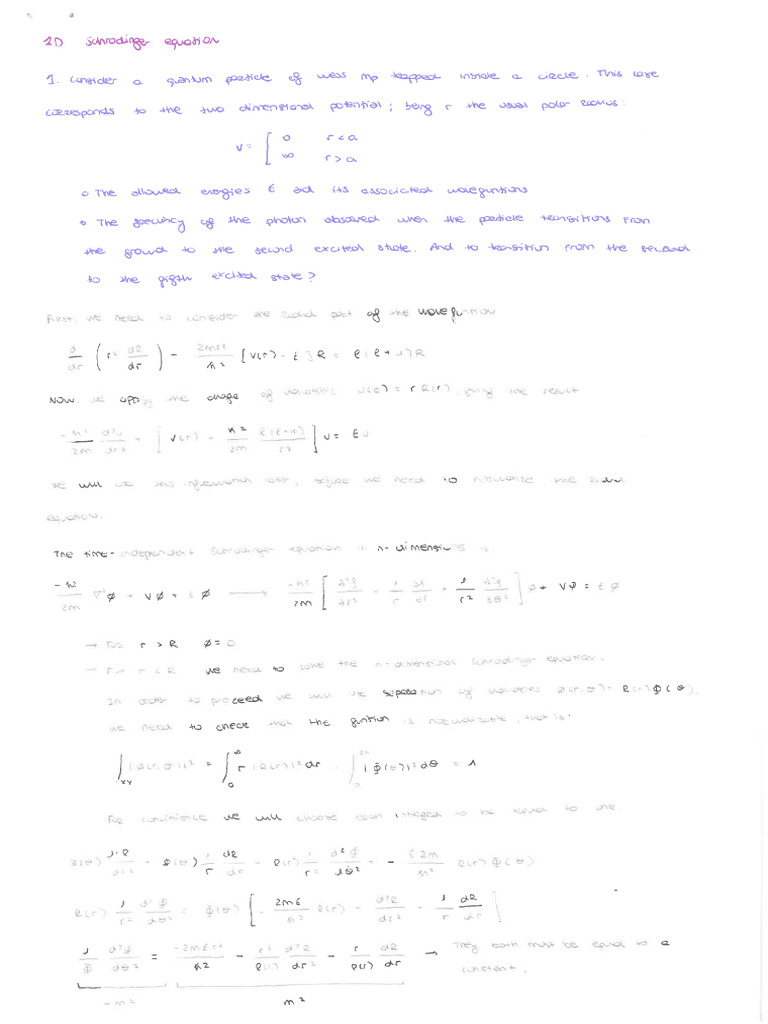 2D Schrodinger equation
1. Consider a quantum particle of mass mp trapped inside a circle. This case
corresponds to the two dimensional potential; being r the usual polar radius:
V = [ 0 r < a
∞ r > a
• The allowed energies E and its associated wavefunctions
• The frecuency of the photon absorved when the particle transitions from
the ground to the second excited state. And to transition from the second
to the fifth excited state?
First, we need to consider the radial part of the wavefunction
d/dr (r² dR/dr) - 2mr²/ħ² [V(r) - E] R = l(l+1)R
Now we apply the change of variables u(r) = r R(r), giving the result
-ħ²/2m d²u/dr² + [V(r) + ħ²/2m l(l+1)/r²] u = Eu
We will use this information later, before we need to normalize the radial
equation.
The time-independent Schrodinger equation in n-dimensions is
-ħ²/2m ∇²ϕ + Vϕ = Eϕ → -ħ²/2m [ ∂²/∂r² + 1/r ∂/∂r + 1/r² ∂²/∂θ² ] ϕ + Vϕ = Eϕ
→ For r > R ϕ = 0
→ For r < R we need to solve the n-dimensional Schrodinger equation.
In order to proceed we will use separation of variables ϕ(r,θ) = R(r)Φ(θ),
we need to check that the function is normalizable, that is:
∫xy |ϕ(r,θ)|² = ∫₀^∞ r |R(r)|² dr · ∫₀^2π |Φ(θ)|² dθ = 1
For convinience we will choose each integral to be equal to one.
Φ(θ) d²R/dr² + Φ(θ) 1/r dR/dr + R(r) 1/r² d²Φ/dθ² = - E2m/ħ² R(r)Φ(θ)
R(r) · 1/r² d²Φ/dθ² = Φ(θ) [ - 2mE/ħ² R(r) - d²R/dr² - 1/r dR/dr ]
1/Φ d²Φ/dθ² = -2mEr²/ħ² - r²/R(r) d²R/dr² - r/R(r) dR/dr → They both must be equal to a
constant.
-m² m²